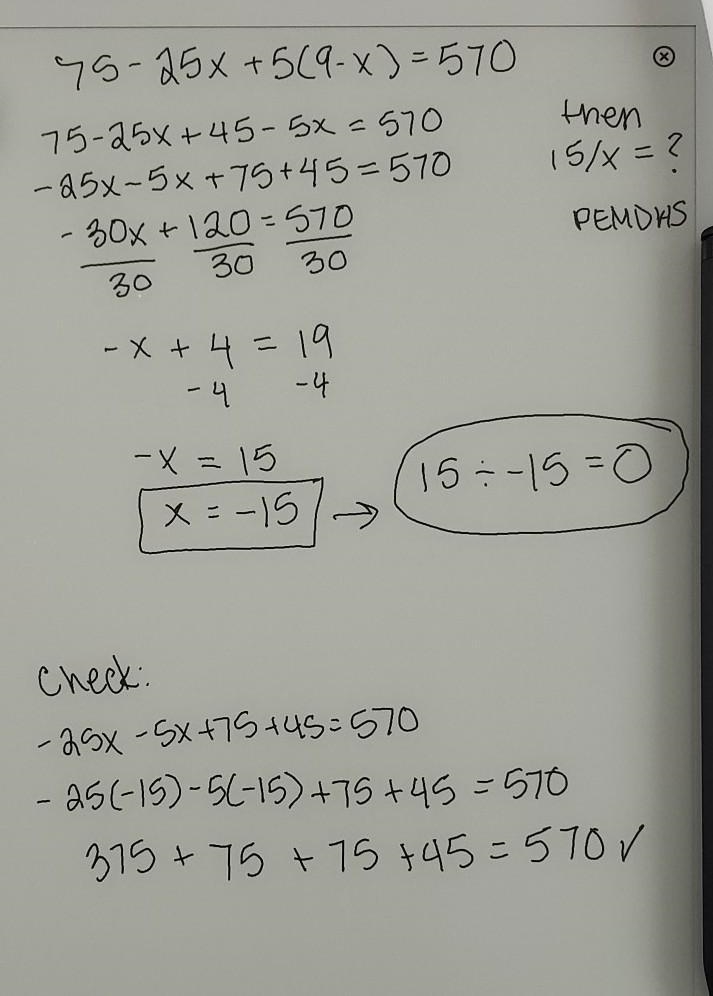 75-25x+5(9-x)=570
ⓧ
75-25x+45-5x=570
-25x-5x+75+45=570
-30x+120=570
30 30 30
-x+4=19
-4 -4
-x=15
x=-15 → 15÷-15=0
then
15/x=?
PEMDAS
Check:
-25x-5x+75+45=570
-25(-15)-5(-15)+75+45=570
375+75+75+45=570✓